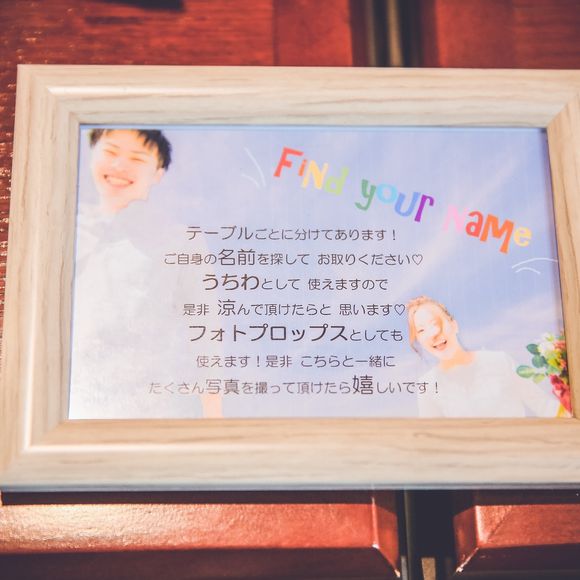 FiND YOUR NAME
テーブルごとに分けてあります！
ご自身の名前を探して お取りください♡
うちわとして 使えますので
是非 涼んで頂けたらと 思います♡
フォトプロップスとしても
使えます！是非 こちらと一緒に
たくさん写真を撮って頂けたら嬉しいです！